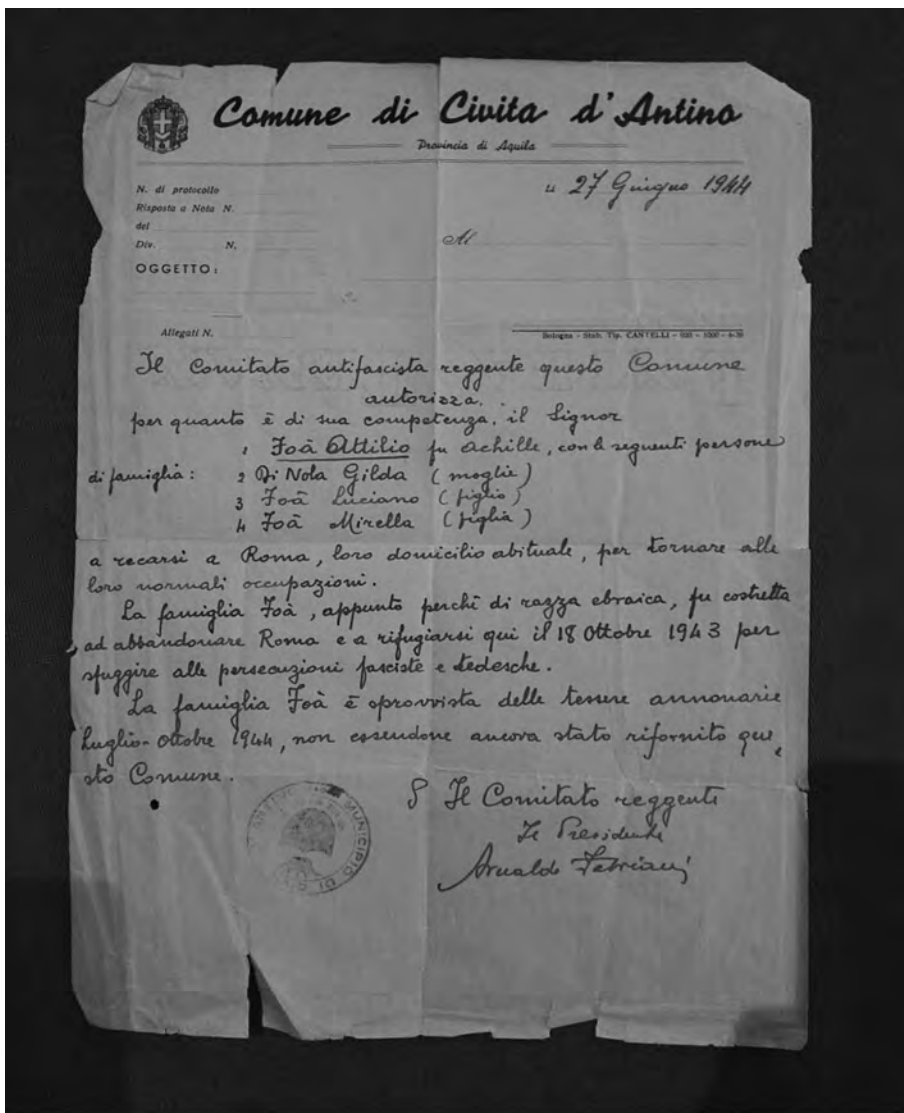 Comune di Civita d'Antino
Provincia di Aquila
N. di protocollo
Risposta a Nota N.
del
Div. N.
OGGETTO:
Allegati N.
li 27 Giugno 1944
Al
Bologna - Stab. Tip. CANTELLI
Il Comitato antifascista reggente questo Comune
autorizza.
per quanto è di sua competenza, il Signor
1 Foà Attilio fu Achille, con le seguenti persone
di famiglia: 2 Di Nola Gilda (moglie)
3 Foà Luciano (figlio)
4 Foà Mirella (figlia)
a recarsi a Roma, loro domicilio abituale, per tornare alle
loro normali occupazioni.
La famiglia Foà, appunto perchè di razza ebraica, fu costretta
ad abbandonare Roma e a rifugiarsi qui il 18 Ottobre 1943 per
sfuggire alle persecuzioni fasciste e tedesche.
La famiglia Foà è sprovvista delle tessere annonarie
Luglio-Ottobre 1944, non essendone ancora stato rifornito que
sto Comune.
Il Comitato reggente
Il Presidente
Arnaldo Febriani
MUNICIPIO DI